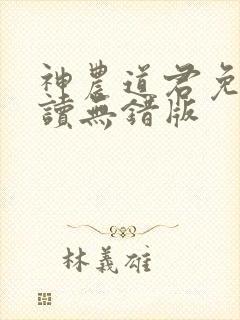 神農道君免
讀無錯版
林義雄